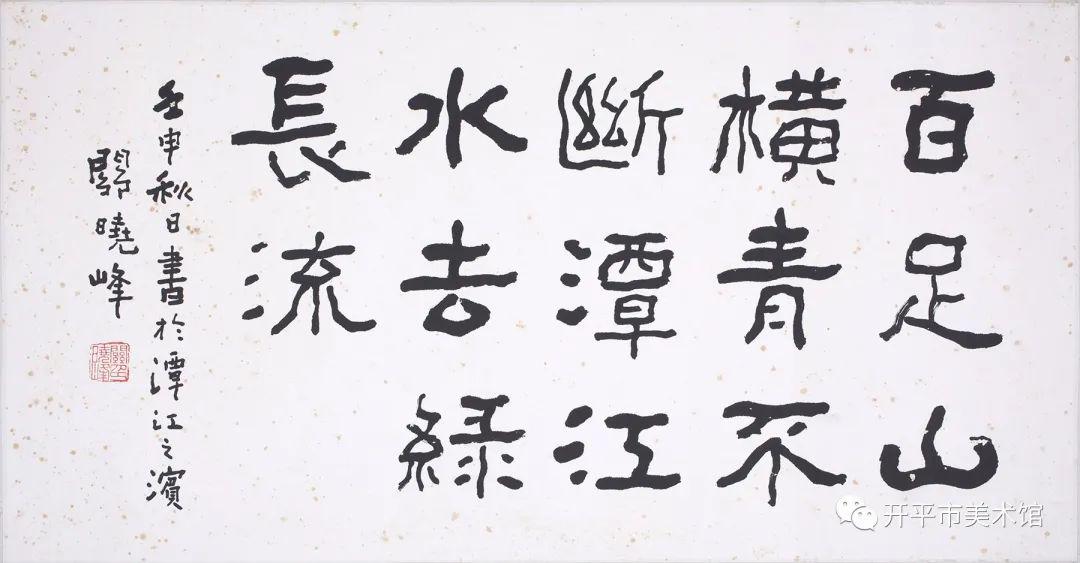 百足山
橫青不
斷潭江
水去綠
長流
壬申秋日書於潭江之濱
關曉峰
關曉峰印
开平市美术馆